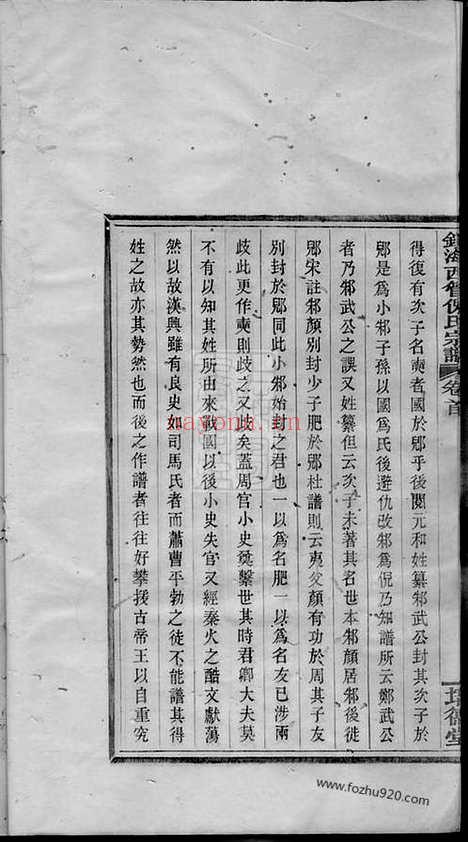 鎮海西管倪氏宗譜 卷首
得復有次子名奭者國於郳乎後閱元和姓纂邾武公封其次子於
郳是爲小邾子孫以國爲氏後避仇改郳爲倪乃知譜所云鄭武公
者乃邾武公之誤又姓纂但云次子未著其名世本邾顏居邾後徙
郳宋註邾顏別封少子肥於郳杜譜則云夷父顏有功於周其子友
別封於郳同此小邾始封之君也一以爲名肥一以爲名友已涉兩
歧此更作奭則歧之又歧矣蓋周官小史奠繫世其時君卿大夫莫
不有以知其姓所由來戰國以後小史失官又經秦火之酷文獻蕩
然以故漢興雖有良史如司馬氏者而蕭曹平勃之徒不能譜其得
姓之故亦其勢然也而後之作譜者往往好攀援古帝王以自重究
nayona.cn
www.fozhu920.com